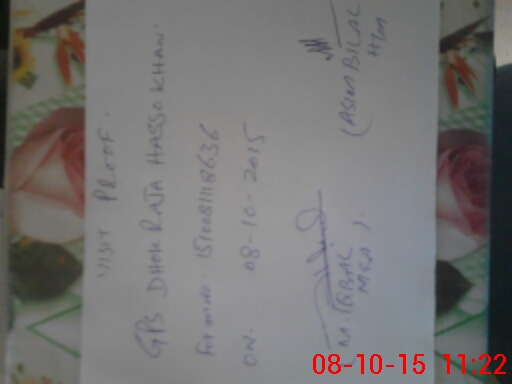 VISIT PROOF.
GPS DHOK RAJA HASSO KHAN.
Form No. 151008118636
ON. 08-10-2015
M. IQBAL
MEA
(ASIM BILAL
08-10-15 11:22